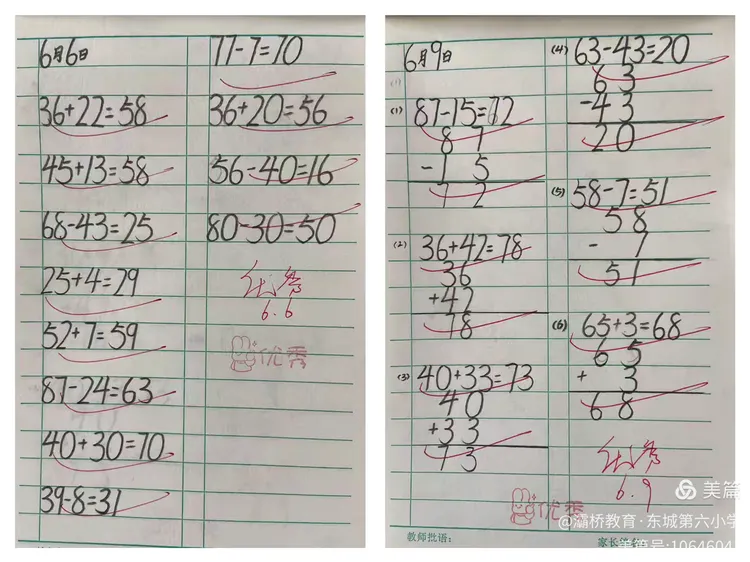 6月6日
36+22=58
45+13=58
68-43=25
25+4=29
52+7=59
87-24=63
40+30=70
39-8=31
77-7=70
36+20=56
56-40=16
80-30=50
优秀
6.6
优秀
6月9日
(1) 87-15=72
87
-15
72
(2) 36+42=78
36
+42
78
(3) 40+33=73
40
+33
73
(4) 63-43=20
63
-43
20
(5) 58-7=51
58
-7
51
(6) 65+3=68
65
+3
68
优秀
6.9
优秀
教师批语:
美篇
@灞桥教育·东城第六小学
美篇号:1064604